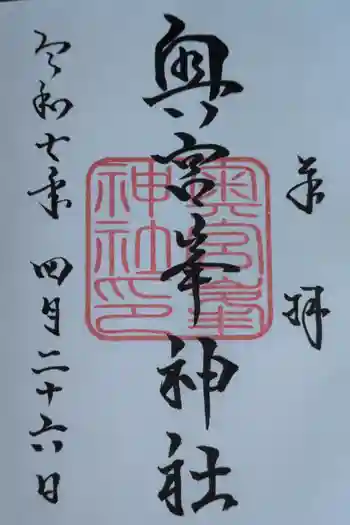 奉拝
奥宮峯神社
奥宮峯神社印
令和七年四月二十六日